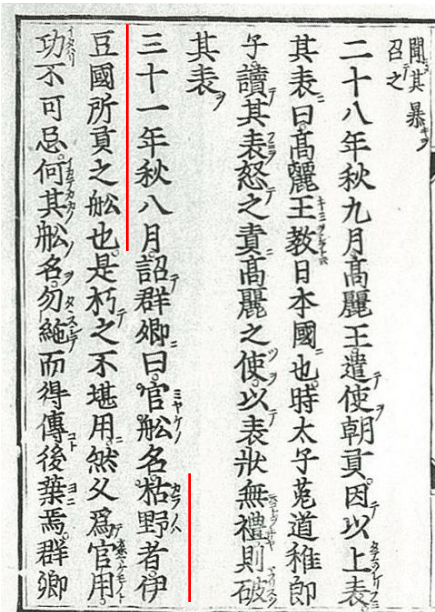 聞其暴
召之
二十八年秋九月髙麗王遣使朝貢。因以上表
其表曰髙麗王教日本國也。時太子菟道稚郎
子讀其表怒之責髙麗之使。以表狀無禮則破
其表
三十一年秋八月。詔群卿曰。官舩名枯野者伊
豆國所貢之舩也。是朽之不堪用。然久爲官用。
功不可忘。何其舩名勿絶而得傳後葉焉。群卿